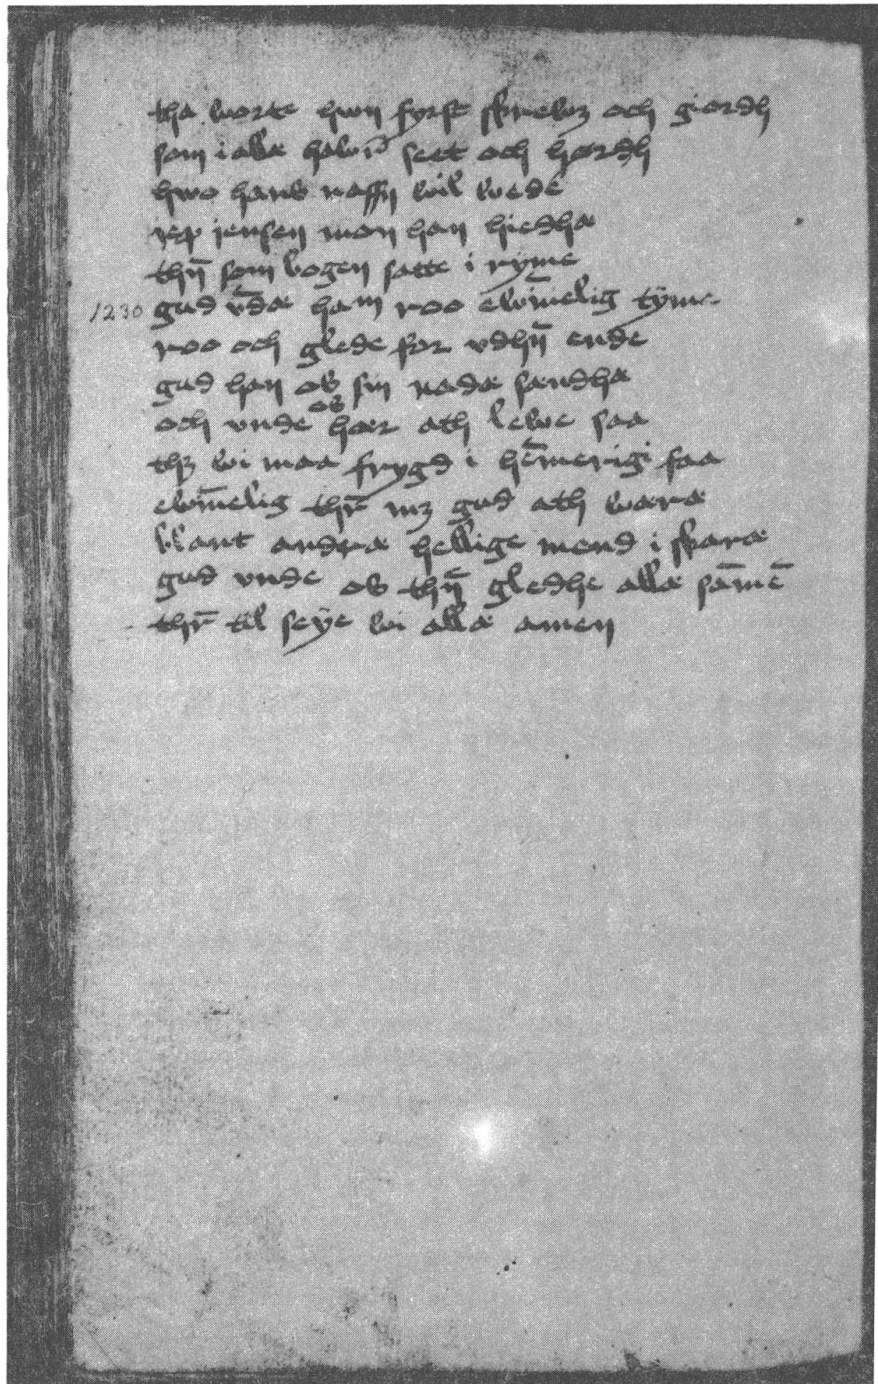 tha worte hwn fyrst skrewꝫ och giordh
som i alle hawr̄ seet och hørdh
hwo hans naffn wil wede
iep iensen mon han hiedhæ
thn̄ som bogen satte i ryme
1230 gud v̄dæ ham roo ewīnelig tyme
roo och glede for vdhn̄ ende
gud han os sin nade sændhæ
och vnde os hær ath lewe saa
thꝫ wi maa frygd i hēmerigi faa
ewīnelig thr̄ mꝫ gud ath wæræ
blant andræ hellige mend i skaræ
gud vnde os thn̄ gledhe allæ sāmē
thr̄ til seye wi allæ amen